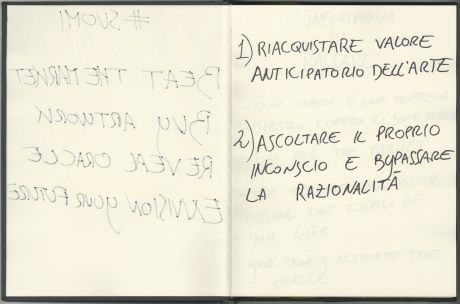 #SUOMI
BEAT THE MARKET
BUY ARTWORK
REVEAL ORACLE
ENVISION YOUR FUTURE
1) RIACQUISTARE VALORE
ANTICIPATORIO DELL'ARTE
- OGNI OPERA È UNA PROFEZIA
2) ASCOLTARE IL PROPRIO
INCONSCIO E BYPASSARE
LA RAZIONALITÀ
DURING THE COURSE OF
YOUR LIFE
- YOUR MONEY ACTIVATE THE
ORACLE